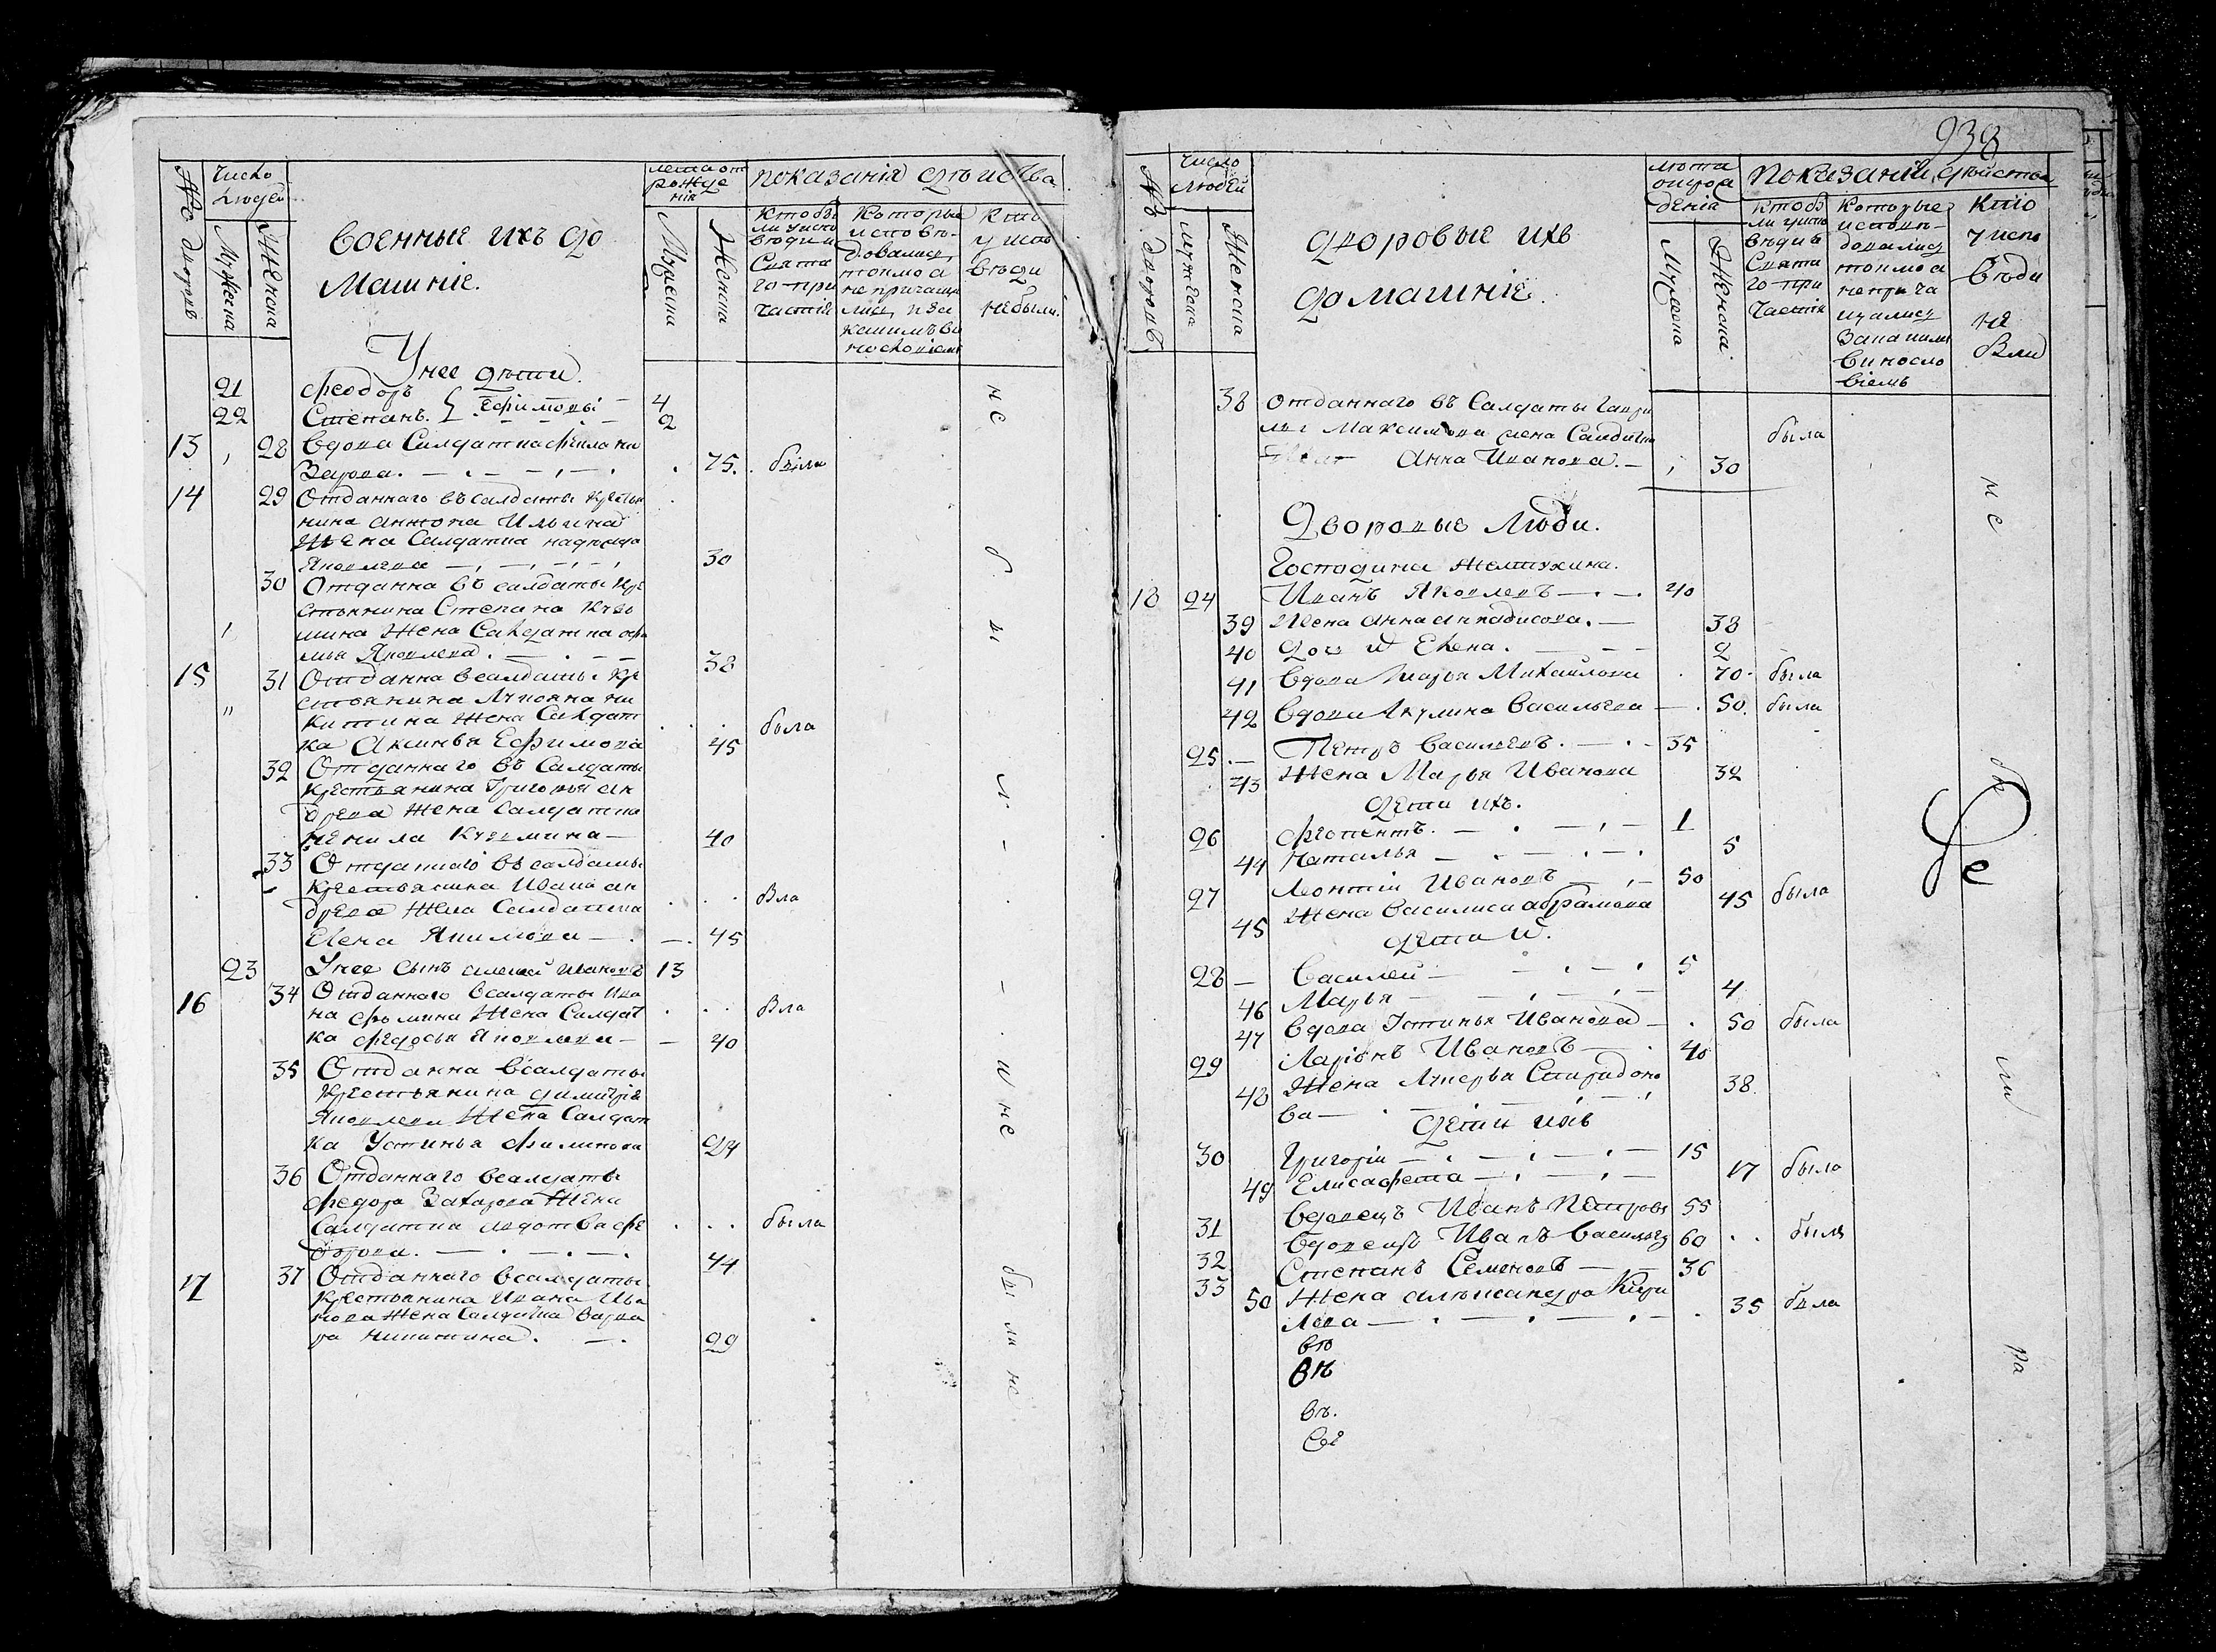 № дворовъ
Число людей
Мужеска
Женска
Военные ихъ до
машніе.
лета от рожденія
Мужеска
Женска
показанія действа
Кто были у исповеди и Святаго причастія
Которые исповедовались токмо а не причащались и за какимъ винословіемъ
Кто у исповеди не были.
У нее дети.
21 Феодоръ } Ефимовы — 4
22 Степанъ. — 2
13 28 Вдова Салдатка
Зарова. — 75. была
14 29 Отданнаго въ салдаты крестья
нина Антона Ильина
Жена Салдатка надежда
Яковлева — 30
30 Отданна въ салдаты кре
стьянина Степана Кузь
мина Жена Салдатка
Яковлева. — 38
15 31 Отданна всалдаты кре
стьянина Лукояна Ни
китина Жена Салдат
ка Акинья Ефимова 45 была
32 Отданнаго въ Салдаты
крестьянина Григорья Ан
древа Жена Салдатка
Ненила Кузмина — 40
33 Отданнаго въ салдаты
крестьянина Ивана Ан
древа Жена Салдатка
Елена Якимова — 45 Вла
23 У нее сынъ Алексей Ивановъ 13
16 34 Отданнаго всалдаты Ива
на Фомина Жена Салдат
ка Федосья Яковлева — 40 Вла
35 Отданна Всалдаты
крестьянина Димитрія
Яковлева Жена Салдат
ка Устинья Филипова 24
36 Отданнаго всалдаты
Федора Захарова Жена
Салдатка Авдотья Фе
дорова. — 44 была
17 37 Отданнаго всалдаты
крестьянина Ивана Ива
нова Жена Салдатка Варва
ра Никитина. — 29
не бы л. и не бы ли не
938
№ дворовъ
Число людей
мужеска
Женска
Дворовые ихъ
домашніе.
лета от рожденія
Мужеска
Женска
Показаніи действа
Кто были у исповеди и Святаго причастія
Которые исповедовались токмо а не причащались за какимъ виносло віемъ
Кто у испо веди не Были
38 Отданнаго въ Салдаты Гаври
лы Максимова жена Салдатка
Анна Иванова. — 30 была
Дворовые Люди.
Господина Желтухина.
18 24 Иванъ Яковлевъ — 40
39 Жена Анна — 38
40 Дочь Елена. — 2
41 Вдова Марья Михайлова 70. была
42 Вдова Акулина Васильева — 50. была
25 Петръ Васильевъ. — 35
43 Жена Марья Иванова 32
Дети ихъ.
26 — 1
44 Наталья — 5
27 Леонтій Ивановъ — 50
45 Жена Василиса Абрамова 45 была
дети
28 Василей — 5
46 Марья — 4
47 Вдова Устинья Иванова — 50 была
29 Ларіонъ Ивановъ — 40
48 Жена Лукерья Спиридоно
ва — 38.
Дети ихъ
30 Григорій — 15
49 Елисафета — 17 была
31 Вдовецъ Иванъ Петровъ 55
32 Вдовецъ Иванъ Васильевъ 60 былъ
33 Степанъ Семеновъ — 36
50 Жена Александра Кири
лова — 35 была
въ
Въ
Въ.
не
Де
ра